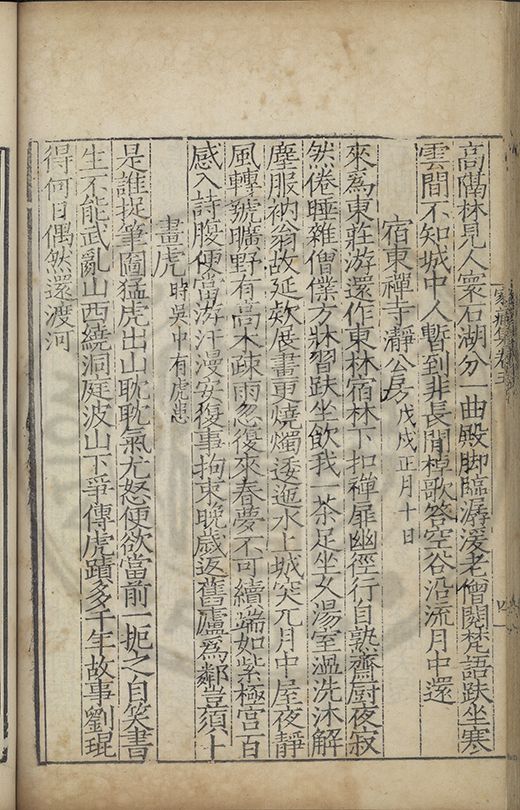 高隔林見人寰石湖分一曲殿脚臨潺湲老僧閱梵語趺坐寒
雲間不知城中人暫到非長閒棹歌答空谷沿流月中還
宿東禪寺瀞公房戊戌正月十日
來爲東莊游還作東林宿林下扣禪扉幽徑行自熟齋厨夜寂
然倦睡雜僧僕方牀習趺坐飲我一茶足坐久湯室溫洗沐解
塵服衲翁故延欵展畫更燒燭逶迤水上城突兀月中屋夜靜
風轉號曠野有高木疎雨忽復來春夢不可續端如紫極宮百
感入詩腹便當游汗漫安復事拘束晚歲返舊廬爲鄰豈須卜
畫虎 時吳中有虎患
是誰捉筆圖猛虎出山耽耽氣尤怒便欲當前一扼之自笑書
生不能武亂山西繞洞庭波山下爭傳虎蹟多千年故事劉琨
得何日偶然還渡河